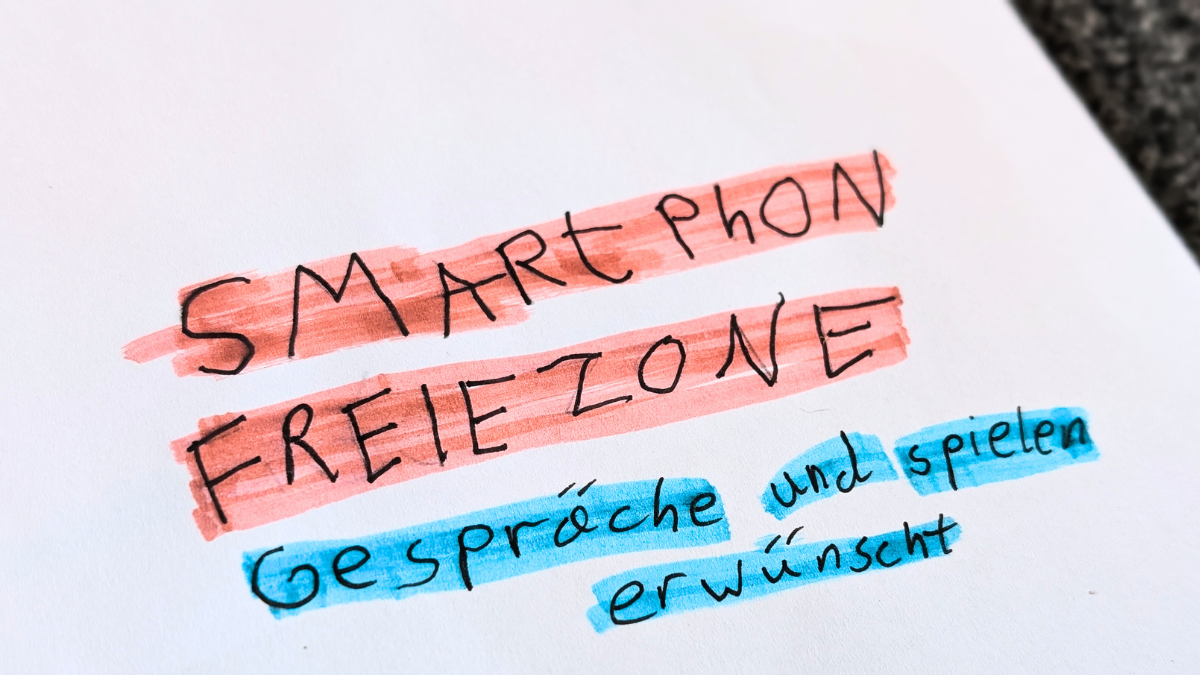 SMARt PhON
FREIEZONE
Gespräche und spielen
erwünscht